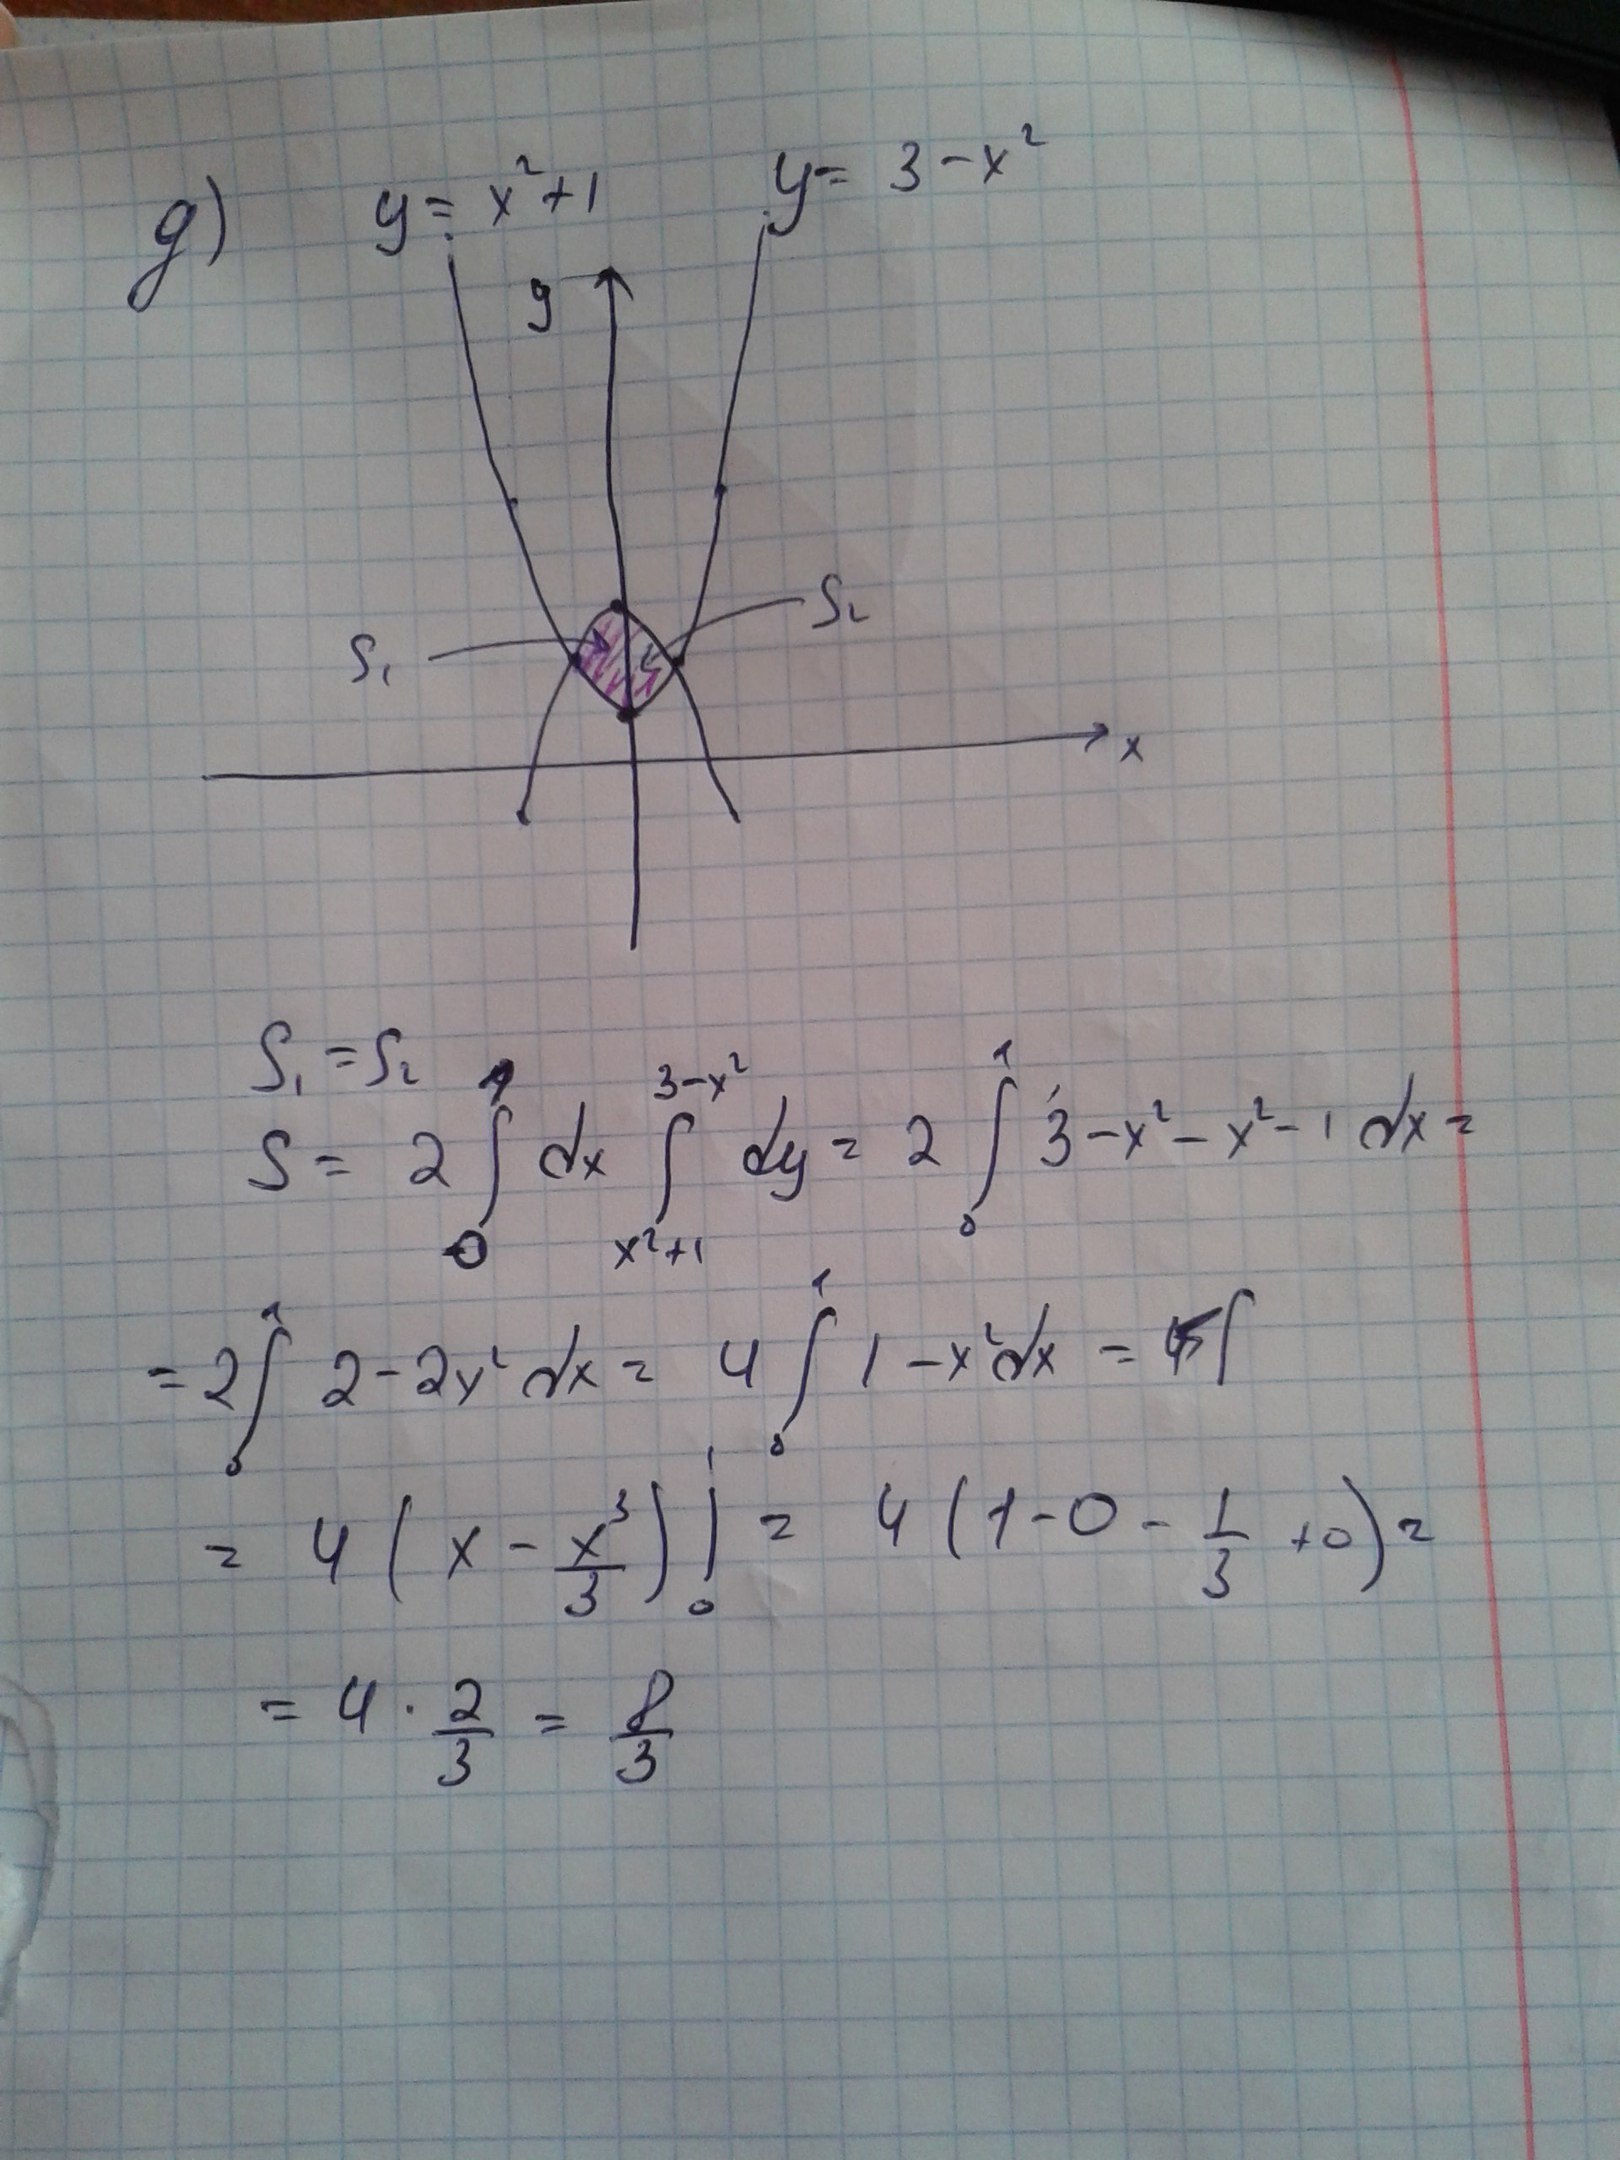 g) y = x²+1 y = 3 - x²
y
S₁ S₂
x
S₁ = S₂
S = 2 ∫₀¹ dx ∫_{x²+1}^{3-x²} dy = 2 ∫₀¹ 3 - x² - x² - 1 dx =
= 2 ∫₀¹ 2 - 2x² dx = 4 ∫₀¹ 1 - x² dx =
= 4 ( x - x³/3 ) |₀¹ = 4 ( 1 - 0 - 1/3 + 0 ) =
= 4 · 2/3 = 8/3